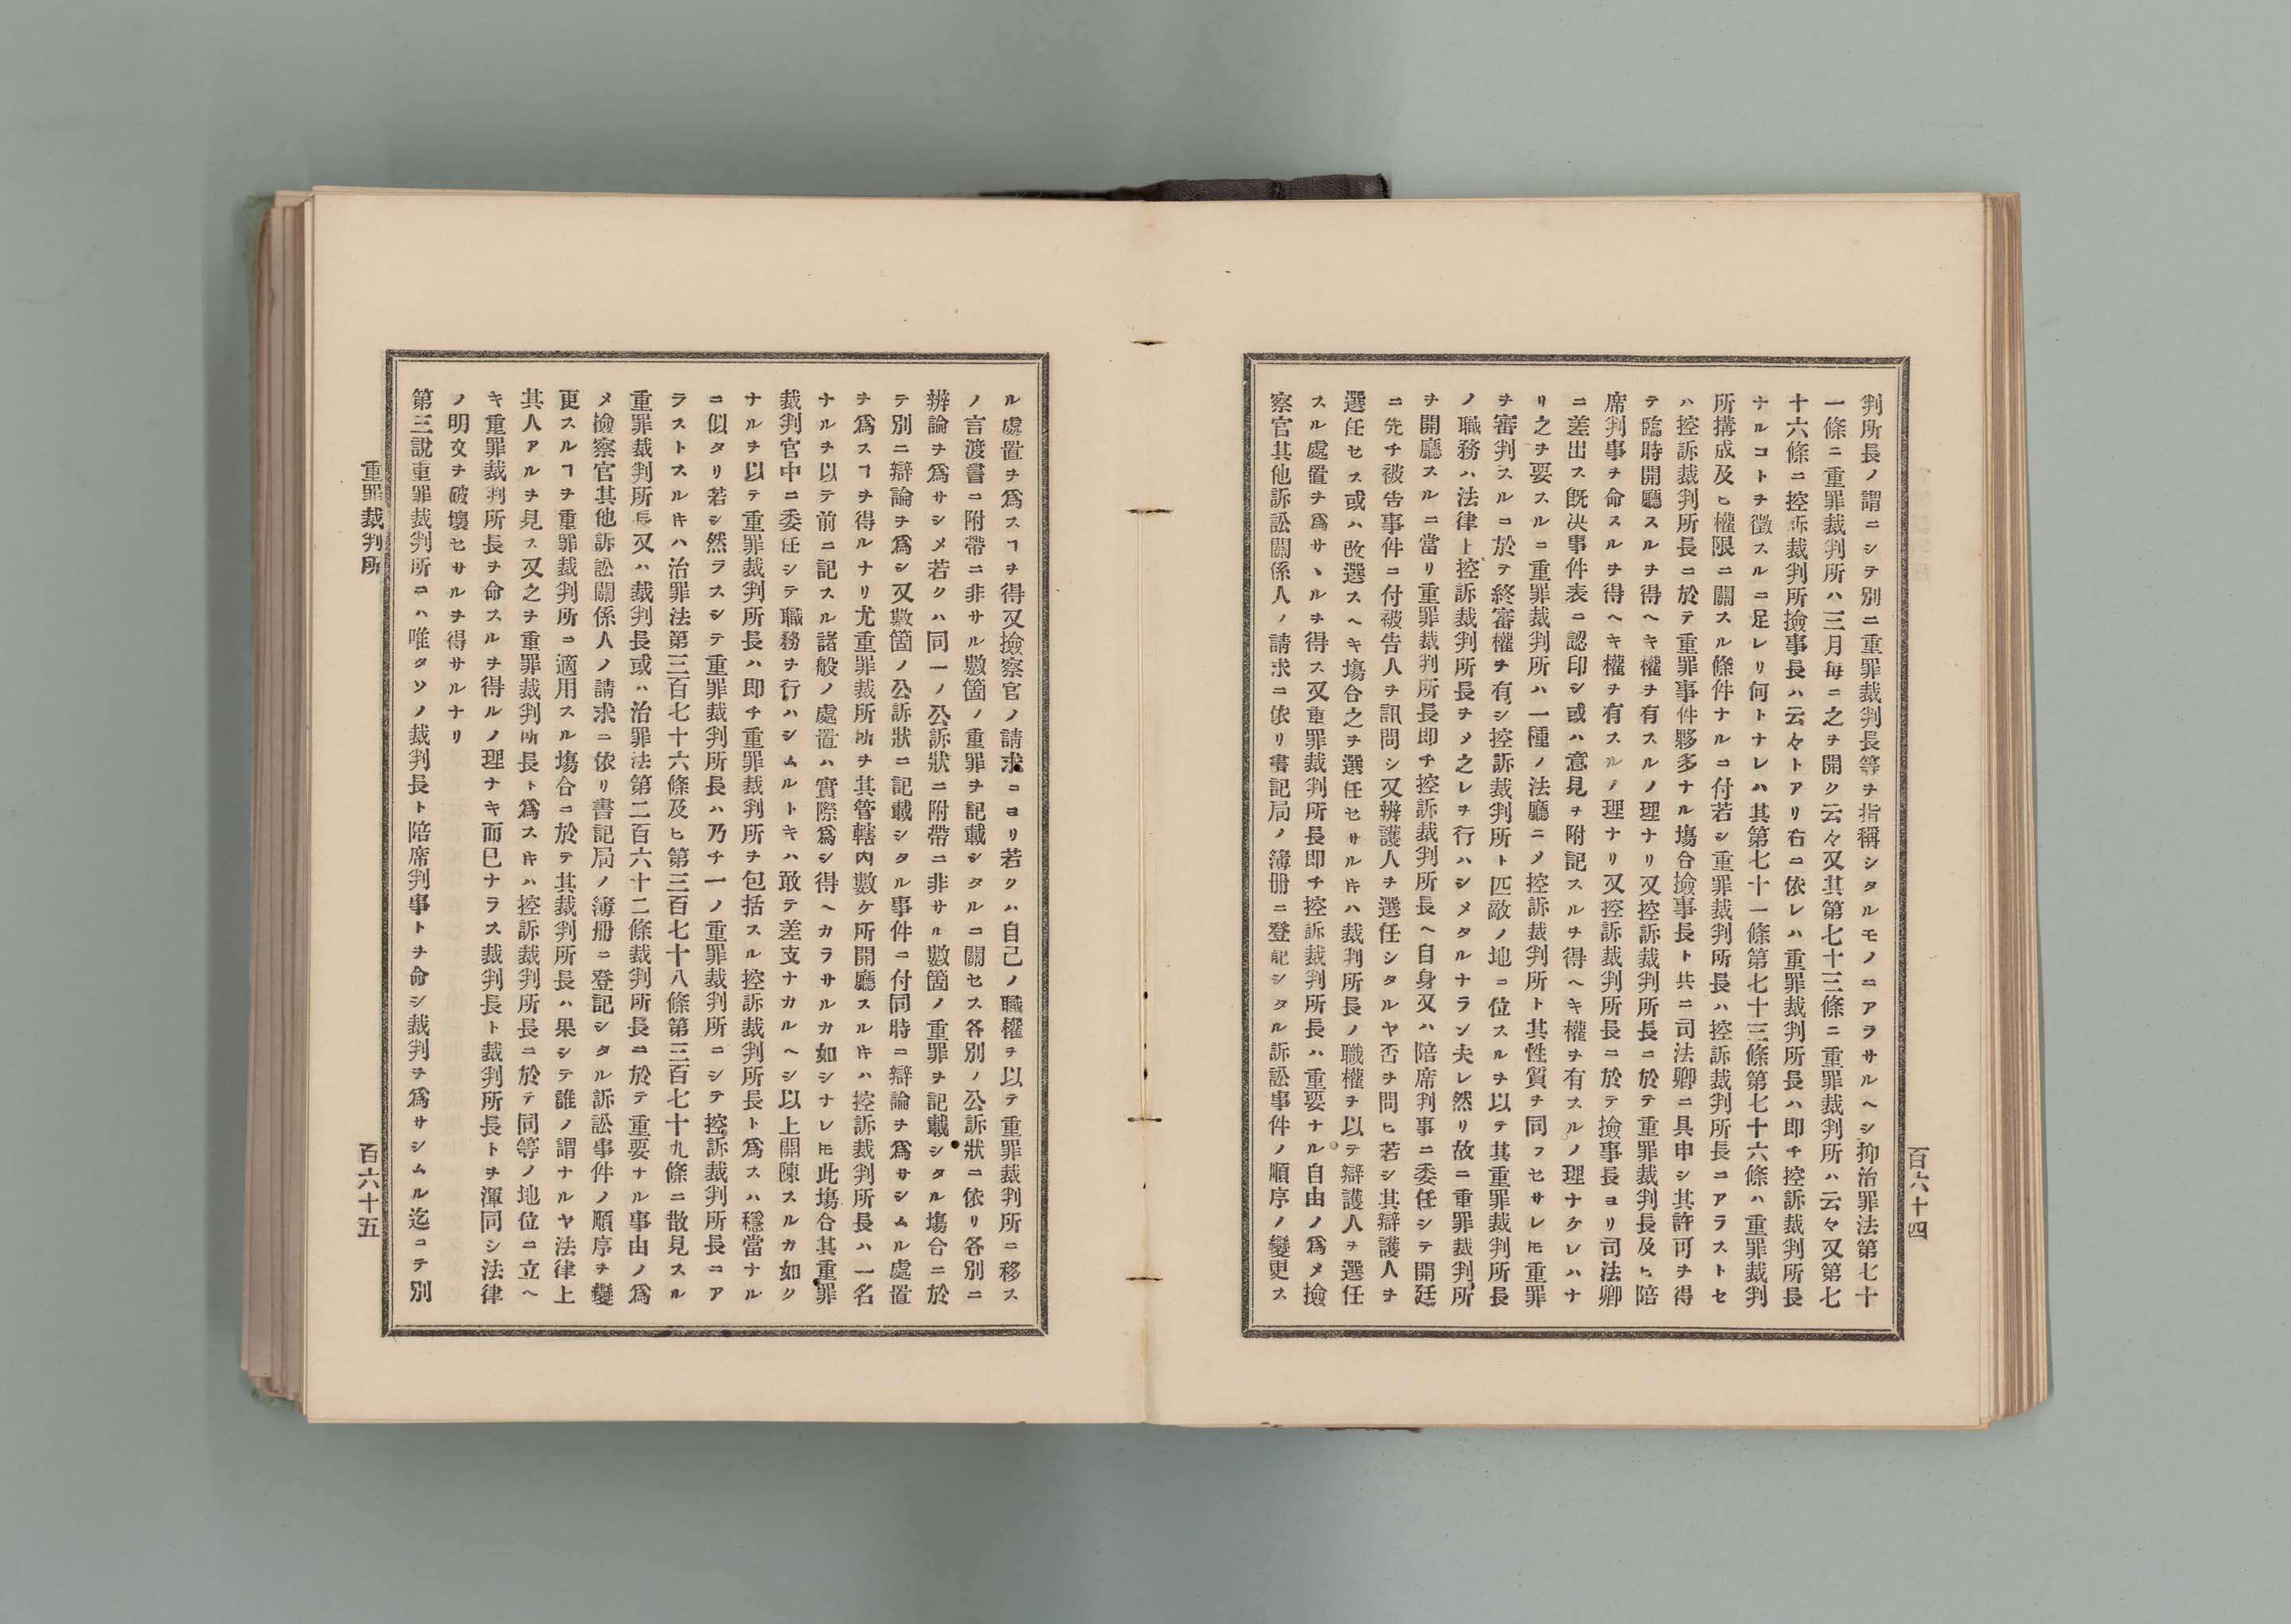 判所長ノ謂ニシテ別ニ重罪裁判長等ヲ指稱シタルモノニアラサルヘシ抑治罪法第七十
一條ニ重罪裁判所ハ三月毎ニ之ヲ開ク云々又其第七十三條ニ重罪裁判所ハ云々又第七
十六條ニ控訴裁判所撿事長ハ云々トアリ右ニ依レハ重罪裁判所長ハ即チ控訴裁判所長
ナルコトヲ徴スルニ足レリ何トナレハ其第七十一條第七十三條第七十六條ハ重罪裁判
所搆成及ヒ權限ニ關スル條件ナルニ付若シ重罪裁判所長ハ控訴裁判所長ニアラストセ
ハ控訴裁判所長ニ於テ重罪事件夥多ナル塲合撿事長ト共ニ司法卿ニ具申シ其許可ヲ得
テ臨時開廳スルヲ得ヘキ權ヲ有スルノ理ナリ又控訴裁判所長ニ於テ重罪裁判長及ヒ陪
席判事ヲ命スルヲ得ヘキ權ヲ有スルノ理ナリ又控訴裁判所長ニ於テ撿事長ヨリ司法卿
ニ差出ス既决事件表ニ認印シ或ハ意見ヲ附記スルヲ得ヘキ權ヲ有スルノ理ナケレハナ
リ之ヲ要スルニ重罪裁判所ハ一種ノ法廳ニメ控訴裁判所ト其性質ヲ同フセサレ𪜈重罪
ヲ審判スルニ於テ終審權ヲ有シ控訴裁判所ト匹敵ノ地ニ位スルヲ以テ其重罪裁判所長
ノ職務ハ法律上控訴裁判所長ヲメ之レヲ行ハシメタルナラン夫レ然リ故ニ重罪裁判所
ヲ開廳スルニ當リ重罪裁判所長即チ控訴裁判所長ヘ自身又ハ陪席判事ニ委任シテ開廷
ニ先チ被告事件ニ付被告人ヲ訊問シ又辨護人ヲ選任シタルヤ否ヲ問ヒ若シ其辯護人ヲ
選任セス或ハ改選スヘキ塲合之ヲ選任セサル𪜈ハ裁判所長ノ職權ヲ以テ辯護人ヲ選任
スル處置ヲ爲サヽルヲ得ス又重罪裁判所長即チ控訴裁判所長ハ重要ナル自由ノ爲メ撿
察官其他訴訟關係人ノ請求ニ依リ書記局ノ簿冊ニ登記シタル訴訟事件ノ順序ノ變更ス
百六十四
ル處置ヲ爲スヿヲ得又撿察官ノ請求ニヨリ若クハ自己ノ職權ヲ以テ重罪裁判所ニ移ス
ノ言渡書ニ附帶ニ非サル數箇ノ重罪ヲ記載シタルニ關セス各別ノ公訴狀ニ依リ各別ニ
辨論ヲ爲サシメ若クハ同一ノ公訴狀ニ附帶ニ非サル數箇ノ重罪ヲ記載シタル塲合ニ於
テ別ニ辯論ヲ爲シ又數箇ノ公訴狀ニ記載シタル事件ニ付同時ニ辯論ヲ爲サシムル處置
ヲ爲スヿヲ得ルナリ尤重罪裁所判ヲ其管轄内數ケ所開廳スルキハ控訴裁判所長ハ一名
ナルヲ以テ前ニ記スル諸般ノ處置ハ實際爲シ得ヘカラサルカ如シナレ𪜈此塲合其重罪
裁判官中ニ委任シテ職務ヲ行ハシムルトキハ敢テ差支ナカルヘシ以上開陳スルカ如ク
ナルヲ以テ重罪裁判所長ハ即チ重罪裁判所ヲ包括スル控訴裁判所長ト爲スハ穩當ナル
ニ似タリ若シ然ラスシテ重罪裁判所長ハ乃チ一ノ重罪裁判所ニシテ控訴裁判所長ニア
ラストスルキハ治罪法第三百七十六條及ヒ第三百七十八條第三百七十九條ニ散見スル
重罪裁判所長又ハ裁判長或ハ治罪法第二百六十二條裁判所長ニ於テ重要ナル事由ノ爲
メ撿察官其他訴訟關係人ノ請求ニ依リ書記局ノ簿冊ニ登記シタル訴訟事件ノ順序ヲ變
更スルヿヲ重罪裁判所ニ適用スル塲合ニ於テ其裁判所長ハ果シテ誰ノ謂ナルヤ法律上
其人アルヲ見ス又之ヲ重罪裁判所長ト爲スキハ控訴裁判所長ニ於テ同等ノ地位ニ立ヘ
キ重罪裁判所長ヲ命スルヲ得ルノ理ナキ而已ナラス裁判長ト裁判所長トヲ渾同シ法律
ノ明文ヲ破壞セサルヲ得サルナリ
第三說重罪裁判所ニハ唯タソノ裁判長ト陪席判事トヲ命シ裁判ヲ爲サシムル迄ニテ別
重罪裁判所
百六十五